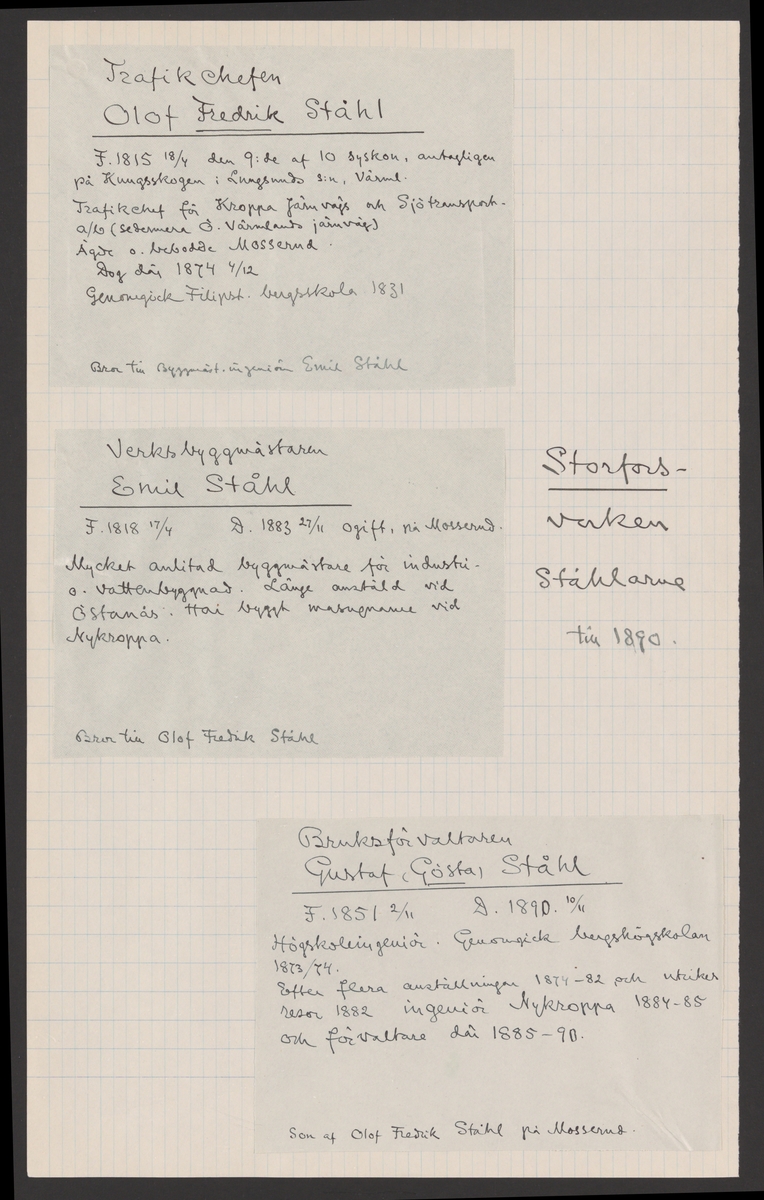 Trafikchefen
Olof Fredrik Ståhl
F. 1815 18/4 den 9:de af 10 syskon, antagligen
på Kungsskogen i Lungsunds s:n, Värml.
Trafikchef för Kroppa Järnvägs och Sjötransport-
a/b (sedermera Ö. Värmlands järnväg)
Ägde o. bebodde Mosserud.
Dog där 1874 4/12
Genomgick Filipst. bergsskola 1831
Bror till Byggmäst. ingeniör Emil Ståhl
Verksbyggmästaren
Emil Ståhl
F. 1818 17/4 D. 1883 27/11 ogift, på Mosserud.
Mycket anlitad byggmästare för industri-
o. vattenbyggnad. Länge anstäld vid
Östanås. Har byggt masugnarne vid
Nykroppa.
Bror till Olof Fredrik Ståhl
Storfors-
verken
Ståhlarne
till 1890.
Bruksförvaltaren
Gustaf (Gösta) Ståhl
F. 1851 2/11 D. 1890. 10/11
Högskoleingeniör. Genomgick bergshögskolan
1873/74.
Efter flera anställningar 1874-82 och utrikes
resor 1882 ingeniör Nykroppa 1884-85
och förvaltare där 1885-90.
Son af Olof Fredrik Ståhl på Mosserud.